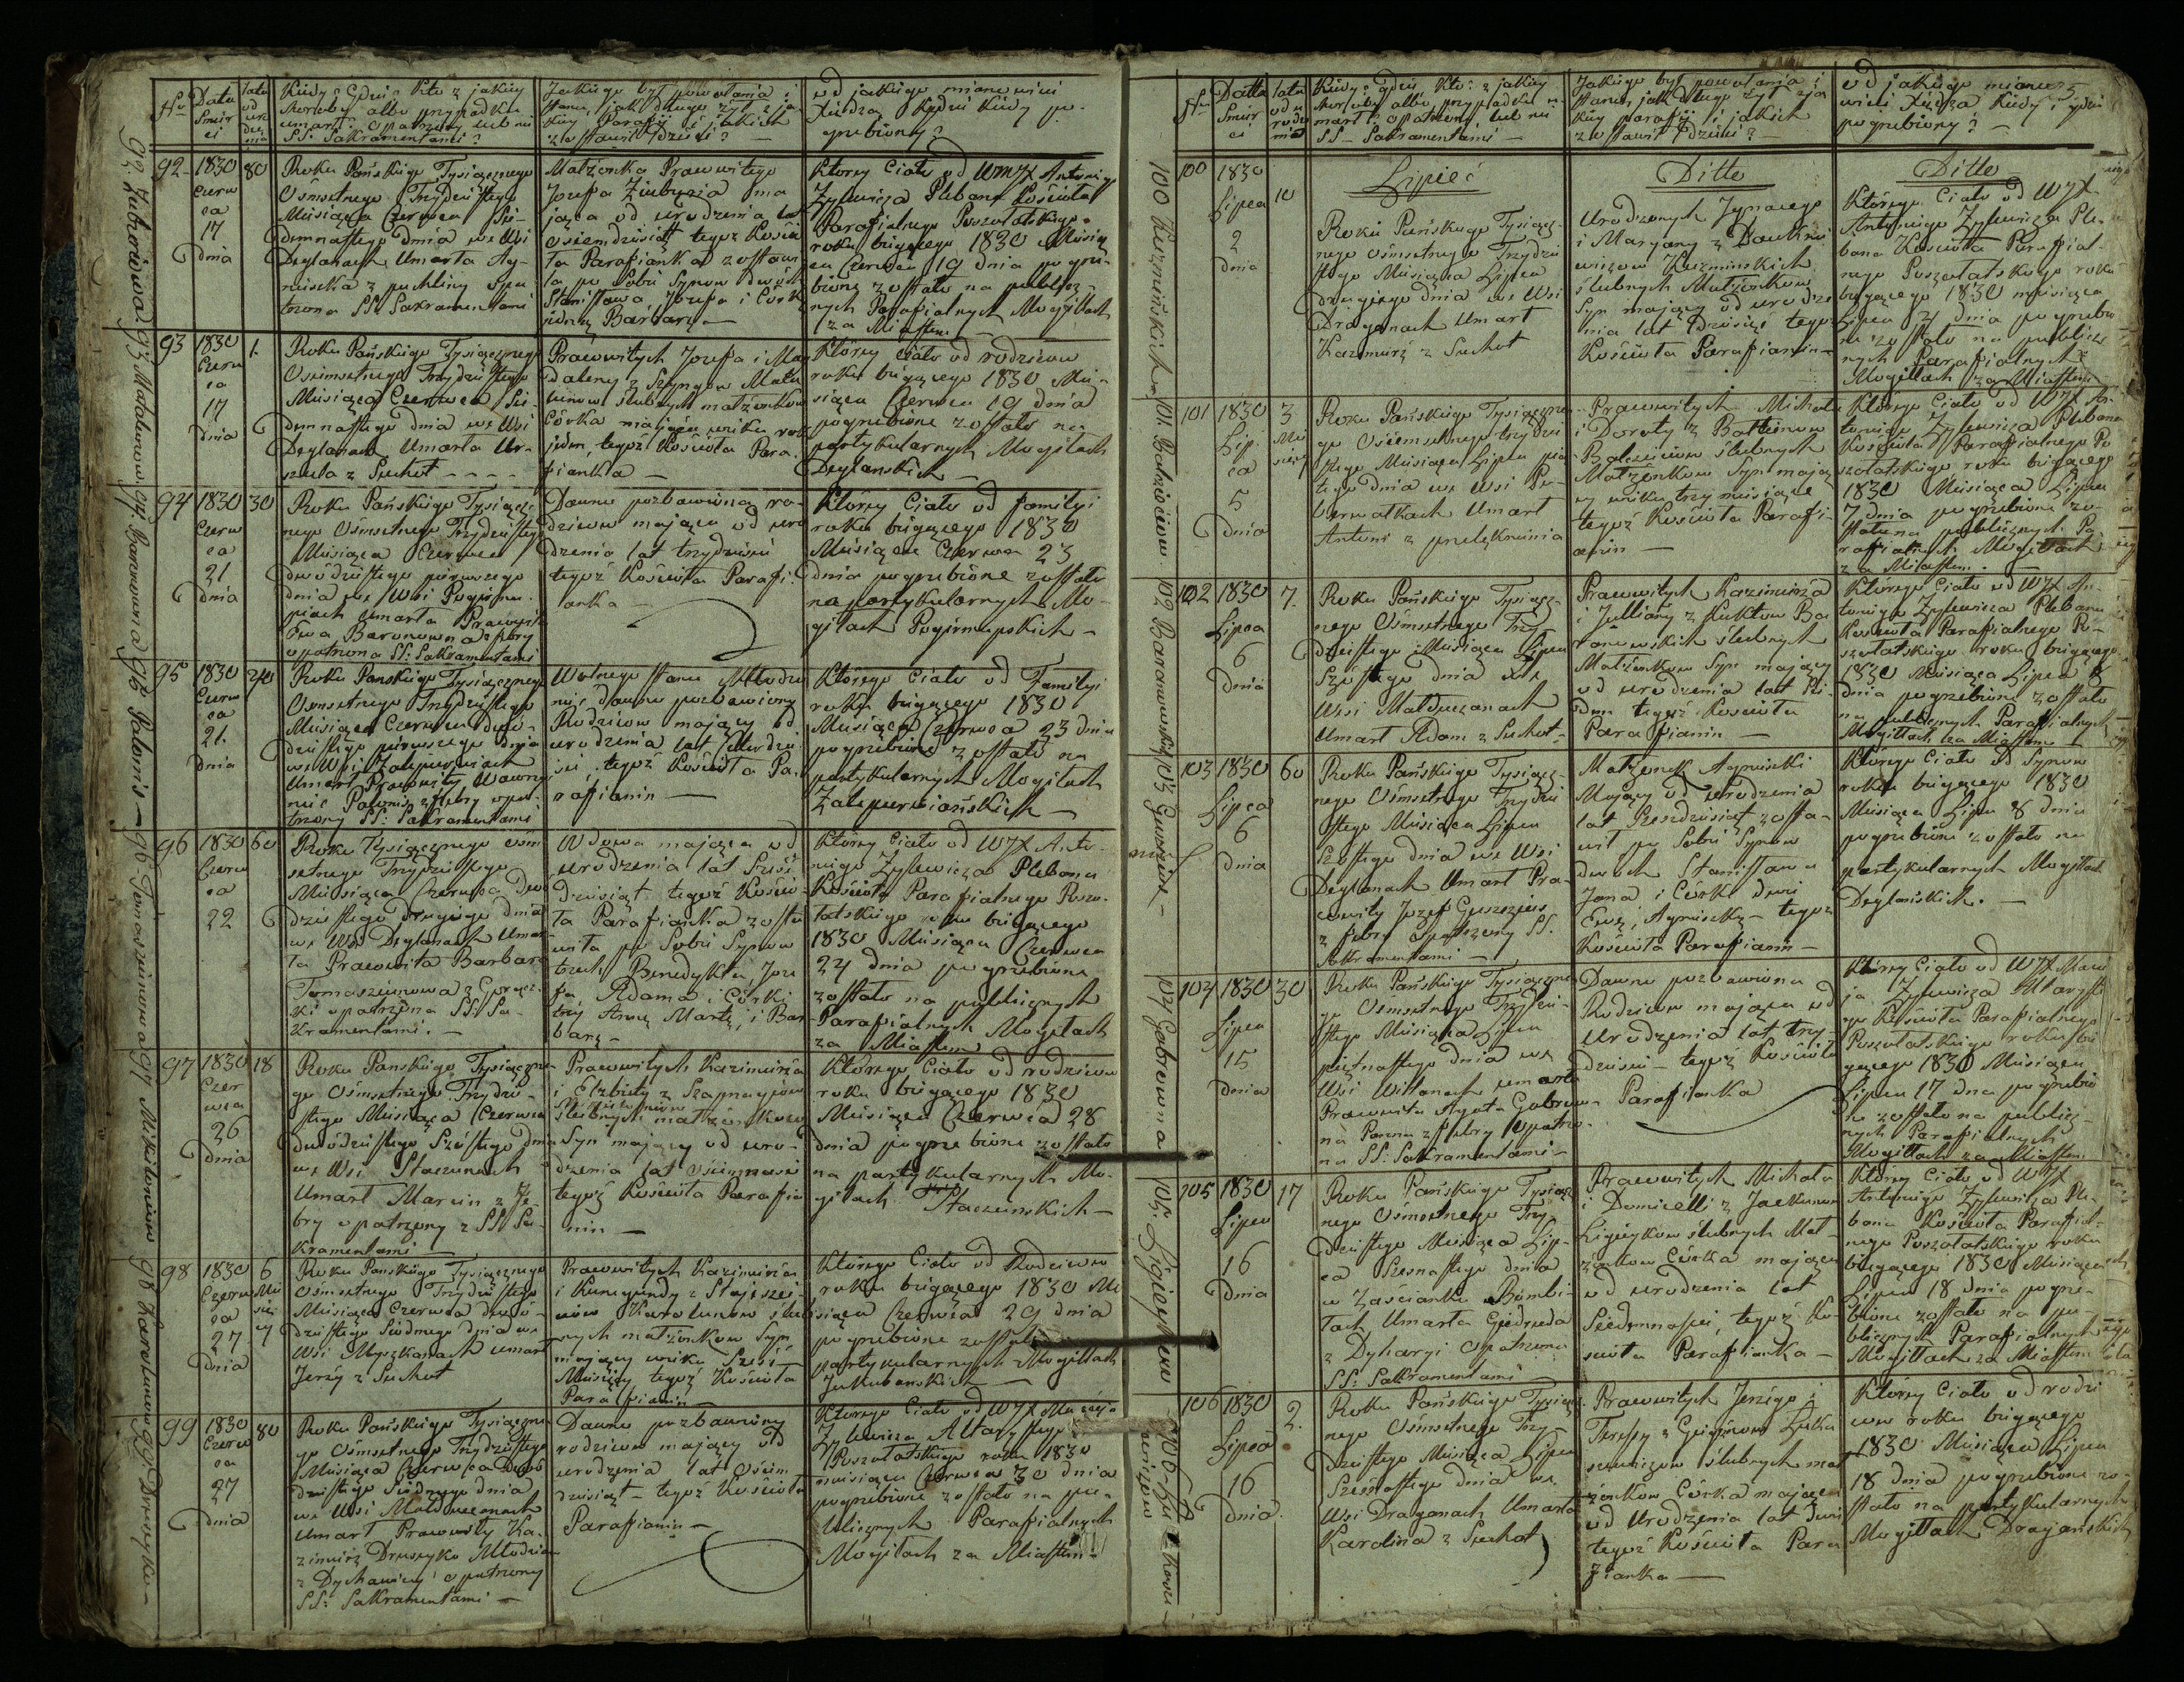 Nr
Data Śmierci
lata od urodzenia
Kiedy? Gdzie? Kto? z jakiey
choroby albo przypadku
umarł? opatrzony lub nie
SS. Sakramentami?
Jakiego był powołania i
stanu, jak długo żył, z ja-
kiey Parafii i jakich
zostawił dzieci?
od jakiego mianowicie
Xiędza, kędzie kiedy po-
grzebiony?
92
1830
Czerw
ca
17
dnia
80
Roku Pańskiego Tysiącznego
Ośmsetnego Trzydziestego
Miesiąca Czerwca Sie-
demnastego dnia we Wsi
Deglanach Umarła Ag-
nieszka z puchliny opa
trzona SS. Sakramentami
Małżonka Prawowitego
Jozefa Ziubrzia ma
jąca od urodzenia lat
osiemdziesiąt tegoż Kościo
ła Parafianka zostawi
ła po Sobie Synow dwóch
Stanisława, Jozefa i Córkę
jednę Barbarę —
Ktorey Ciało od WmJX Antoniego
Zylewicza Plebana Kościoła
Parafialnego Poszołatskiego
roku bieżącego 1830 Miesią
ca Czerwca 19 dnia pogrze-
bione zostało na publicz-
nych Parafialnych Mogiłach
za Miastem. —
93
1830
Czerw
ca
17
dnia
1.
Roku Pańskiego Tysiącznego
Osiemsetnego Trzydziestego
Miesiąca Czerwca Sie
demnastego dnia we Wsi
Deglanach Umarła Ur-
szula z Suchot - - - -
Prawowitych Jozefa i Mag
daleny z Szyngow Matu
lunow ślubnych małżonkow
Córka mająca wieku rok
jeden, tegoż Kościoła Para-
fianka —
Którey Ciało od rodzicow
roku bieżącego 1830 Mie-
siąca Czerwca 19 dnia
pogrzebione zostało na
partykularnych Mogiłach
Deglanskich —
94
1830
Czerw
ca
21
dnia
30
Roku Pańskiego Tysiącz-
nego Ośmsetnego Trzydziestego
Miesiąca Czerwca
dwódziestego pierwszego
dnia we Wsi Pogirnu-
piach umarła Prawowita
Ewa Baronowna z febry
opatrzona SS: Sakramentami
Dawno pozbawiona ro-
dzicow mająca od uro
dzenia lat trzydzieści
tegoż Kościoła Parafi-
anka —
Którey Ciało od familyi
roku bieżącego 1830
Miesiąca Czerwca 23
dnia pogrzebione zostało
na partykularnych Mo-
giłach Pogirnupskich —
95
1830
Czerw
ca
21.
dnia
40
Roku Panskiego Tysiącznego
Osmsetnego Trzydziestego
Miesiąca Czerwca dwó-
dziestego pierwszego dnia
we Wsi Zalepurwiach
Umarł Prawowity Wawrzy
niec Palonis z febry opa-
trzony SS: Sakramentami
Wolnego stanu Młodzie
niec dawno pozbawiony
Rodzicow mający od
urodzenia lat Czterdzie
ści, tegoż Kościoła Pa-
rafianin —
Którego Ciało od Familyi
roku bieżącego 1830
Miesiąca Czerwca 23 dnia
pogrzebione zostało na
partykularnych Mogiłach
Zalepurwiańskich —
96
1830
Czerw
ca
22
60
Roku Tysiącznego ośm
setnego Trzydziestego
Miesiąca Czerwca Dwó
dziestego drugiego dnia
we Wsi Deglanach Umar
ła Prawowita Barbara
Tomaszunowa z Gorącz-
ki opatrzona SS: Sa-
kramentami. —
Wdowa mająca od
urodzenia lat Sześć
dziesiąt tegoż Kościo-
ła Parafianka zosta
wiła po Sobie Synow
trzech Benedykta, Joze
fa, Adama i Córki
trzy Annę, Martę, i Bar
barę —
Którey Ciało od WJX Anto-
niego Zylewicza Plebana
Kościoła Parafialnego Poszo-
łatskiego roku bieżącego
1830 Miesiąca Czerwca
24 dnia pogrzebione
zostało na publicznych
Parafialnych Mogiłach
za Miastem
97
1830
Czer
wca
26
dnia
18
Roku Panskiego Tysiączne
go Ośmsetnego Trzydzie-
stego Miesiąca Czerwca
dwódziestego Szóstego dnia
we Wsi Staczunach
Umarł Marcin z Fe-
bry opatrzony z SS Sa-
kramentami
Prawowitych Kazimierza
i Elzbiety z Szapnagiow
Mikieluniow
Ślubnych małżonkow
Syn mający od uro-
dzenia lat ośmnaście
tegoż Kościoła Parafia
nin —
Którego Ciało od rodzicow
roku bieżącego 1830
Miesiąca Czerwca 28
dnia pogrzebione zostało
na partykularnych Mo-
giłach Staczunskich —
98
1830
Czerw
ca
27
dnia
6
Mie
się
cy
Roku Panskiego Tysiącznego
osmsetnego Trzydziestego
Miesiąca Czerwca dwó-
dziestego Siódmego dnia we
Wsi Myszkanach umarł
Jerzy z Suchot
Prawowitych Kazimierza
i Kunegundy z Stajszei-
niów Karolunow ślub
nych małżonkow Syn
mający wieku Sześć
Miesięcy tegoż Kościoła
Parafianin —
Którego Ciało od Rodzicow
roku bieżącego 1830 Mie
siąca Czerwca 29 dnia
pogrzebione zostało
partykularnych Mogiłach
Jukubanskich —
99
1830
Czerw
ca
27
dnia
80
Roku Pańskiego Tysiączne
go Ośmsetnego Trzydziestego
Miesiąca Czerwca Dwó
dziestego Siódmego dnia
we Wsi Małduczanach
Umarł Prawowity Ka-
zimierz Druseyko Młodzian
z Dychawicy opatrzony
SS: Sakramentami —
Dawno pozbawiony
rodzicow mający od
urodzenia lat Ośm
dziesiąt — tegoż Kościoła
Parafianin —
Ktorego Ciało od WJX Macieja
Zylewicza Altarzystego
Poszołatskiego roku 1830
miesiąca Czerwca 30 dnia
pogrzebione zostało na pu-
blicznych Parafialnych
Mogiłach za Miastem —
92. Jubrowiowa 93 Matulunow 94. Baronowna 95 Palonis — 96 Tomaszunowa 97 Mikieluniow 98 Karolunow 99 Druseyko —
Nr
Datta Śmierci
lata od urodzenia
Kiedy? gdzie? Kto? z jakiey
choroby albo przypadku u-
marł? opatrzony lub nie
SS — Sakramentami —
Jakiego był powołania i
stanu, jak długo żył z ja
kiey parafii i jakich
zostawił dzieci? —
od jakiego miano-
wicie Xiędza kiedy i gdzie
pogrzebiony? —
100
1830
Lipca
2
dnia
10
Lipiec
Roku Pańskiego Tysiącz-
nego Ośmsetnego Trzydzie
stego Miesiąca Lipca
drugiego dnia we Wsi
Draganach Umarł
Kazimierz z Suchot
Ditto
Urodzonych Ignacego
i Maryany z Daukne
wiczow Kuzminskich
ślubnych Małżonkow
Syn mający od urodze
nia lat dziesięć tegoż
Kościoła Parafianin —
Ditto
Którego Ciało od WJX
Antoniego Zylewicza Ple-
bana Kościoła Parafial-
nego Poszołatskiego roku
bieżącego 1830 miesiąca
Lipca 4 dnia pogrzebio
ne zostało na publicz
nych Parafialnych
Mogiłłach za Miastem
101
1830
Lip-
ca
5
dnia
3
Mie
sięcy
Roku Pańskiego Tysiączne
go Osiemsetnego trzydzie
stego Miesiąca Lipca pią
tego dnia we Wsi Pu-
Umarł
Antoni z przelęknienia
Prawowitych Michała
i Doroty z Battinow
Balceiciow ślubnych
Małżonkow Syn mają
cy wieku trzy miesiące
tegoż Kościoła Parafi-
anin —
Którego Ciało od WJX An-
toniego Zylewicza Plebana
Kościoła Parafialnego Po
szołatskiego roku bieżącego
1830 Miesiąca Lipca
7 dnia pogrzebione zo-
stało na publicznych Pa-
rafialnych Mogiłłach
za Miastem. —
102
1830
Lipca
6
dnia
7.
Roku Pańskiego Tysiącz-
nego Ośmsetnego Trzy
dziestego Miesiąca Lipca
Szóstego dnia we
Wsi Małduczanach
Umarł Adam z Suchot
Prawowitych Kazimierza
i Julliany z Kuktow Ba
ranowskich ślubnych
Małżonkow Syn mający
od urodzenia lat Sie
dm tegoż Kościoła
Parafianin —
Którego Ciało od WJX An-
toniego Zylewicza Plebana
Kościoła Parafialnego Po-
szołatskiego roku bieżącego
1830 Miesiąca Lipca 8
dnia pogrzebione zostało
na publicznych Parafialnych
Mogiłłach za Miastem —
103
1830
Lipca
6
dnia
60
Roku Pańskiego Tysiącz-
nego Ośmsetnego Trzydzie
stego Miesiąca Lipca
Szóstego dnia we Wsi
Deglanach Umarł Pra-
wowity Jozef Guszczius
z febry Opatrzony SS.
Sakramentami —
Małżonek Agnieszki
Mający od urodzenia
lat Sześćdziesiąt zosta-
wił po Sobie Synow
dwóch Stanisława
Jana i Córki dwie
Ewę, i Agnieszkę — tegoż
Kościoła Parafianin —
Którego Ciało od Synow
roku bieżącego 1830
Miesiąca Lipca 8 dnia
pogrzebione zostało na
partykularnych Mogiłłach
Deglańskich. —
104
1830
Lipca
15
dnia
30
Roku Pańskiego Tysiączne
go Ośmsetnego Trzydzie-
stego Miesiąca Lipca
piętnastego dnia we
Wsi Willanach umarła
Prawowita Agata Gabrow-
na Panna z febry Opatrzo-
na SS: Sakramentami —
Dawno pozbawiona
Rodzicow mająca od
Urodzenia lat trzy-
dzieści — tegoż Kościoła
Parafianka
Którey Ciało od WJX Macie
ja Zylewicza Altarzyste
go Kościoła Parafialnego
Poszołatskiego roku bie
żącego 1830 Miesiąca
Lipca 17 dnia pogrzebio
ne zostało na publicz-
nych Parafialnych
Mogiłłach za Miastem
105
1830
Lipca
16
dnia
17
Roku Pańskiego Tysiącz
nego Ośmsetnego Trzy-
dziestego Miesiąca Lip-
ca Szesnastego dnia
w Zascianku Bimbi-
łach Umarła Giedruda
z Dyharyi Opatrzona
SS: Sakramentami
Prawowitych Michała
i Domicelli z Jackunow
Ligieykow ślubnych Mał-
żonkow Córka mająca
od urodzenia lat
Siedmnaście, tegoż Ko-
ścioła Parafianka —
Którey Ciało od WJX
Antoniego Zylewicza Ple-
bana Kościoła Parafial-
nego Poszołatskiego roku
bieżącego 1830 Miesiąca
Lipca 18 dnia pogrze-
bione zostało na pu-
blicznych Parafialnych
Mogiłłach za Miastem
106
1830
Lipca
16
dnia.
2.
Roku Pańskiego Tysiącz
nego Ośmsetnego Trzy
dziestego Miesiąca Lipca
Szesnastego dnia we
Wsi Draganach Umarła
Karolina z Suchot
Prawowitych Jerzego i
Teressy z Luka
szewiczow ślubnych mał
żonkow Córka mająca
od Urodzenia lat dwie
tegoż Kościoła Para
fianka —
Którey Ciało od rodzi
cow roku bieżącego
1830 Miesiąca Lipca
18 dnia pogrzebione zo-
stało na partykularnych
Mogiłłach Dragańskich
100 Kuzmińskich 101. Balceiciow 102 Baranowskich 103 Guszczius — 104 Gabrowna 105. Ligieykow 106